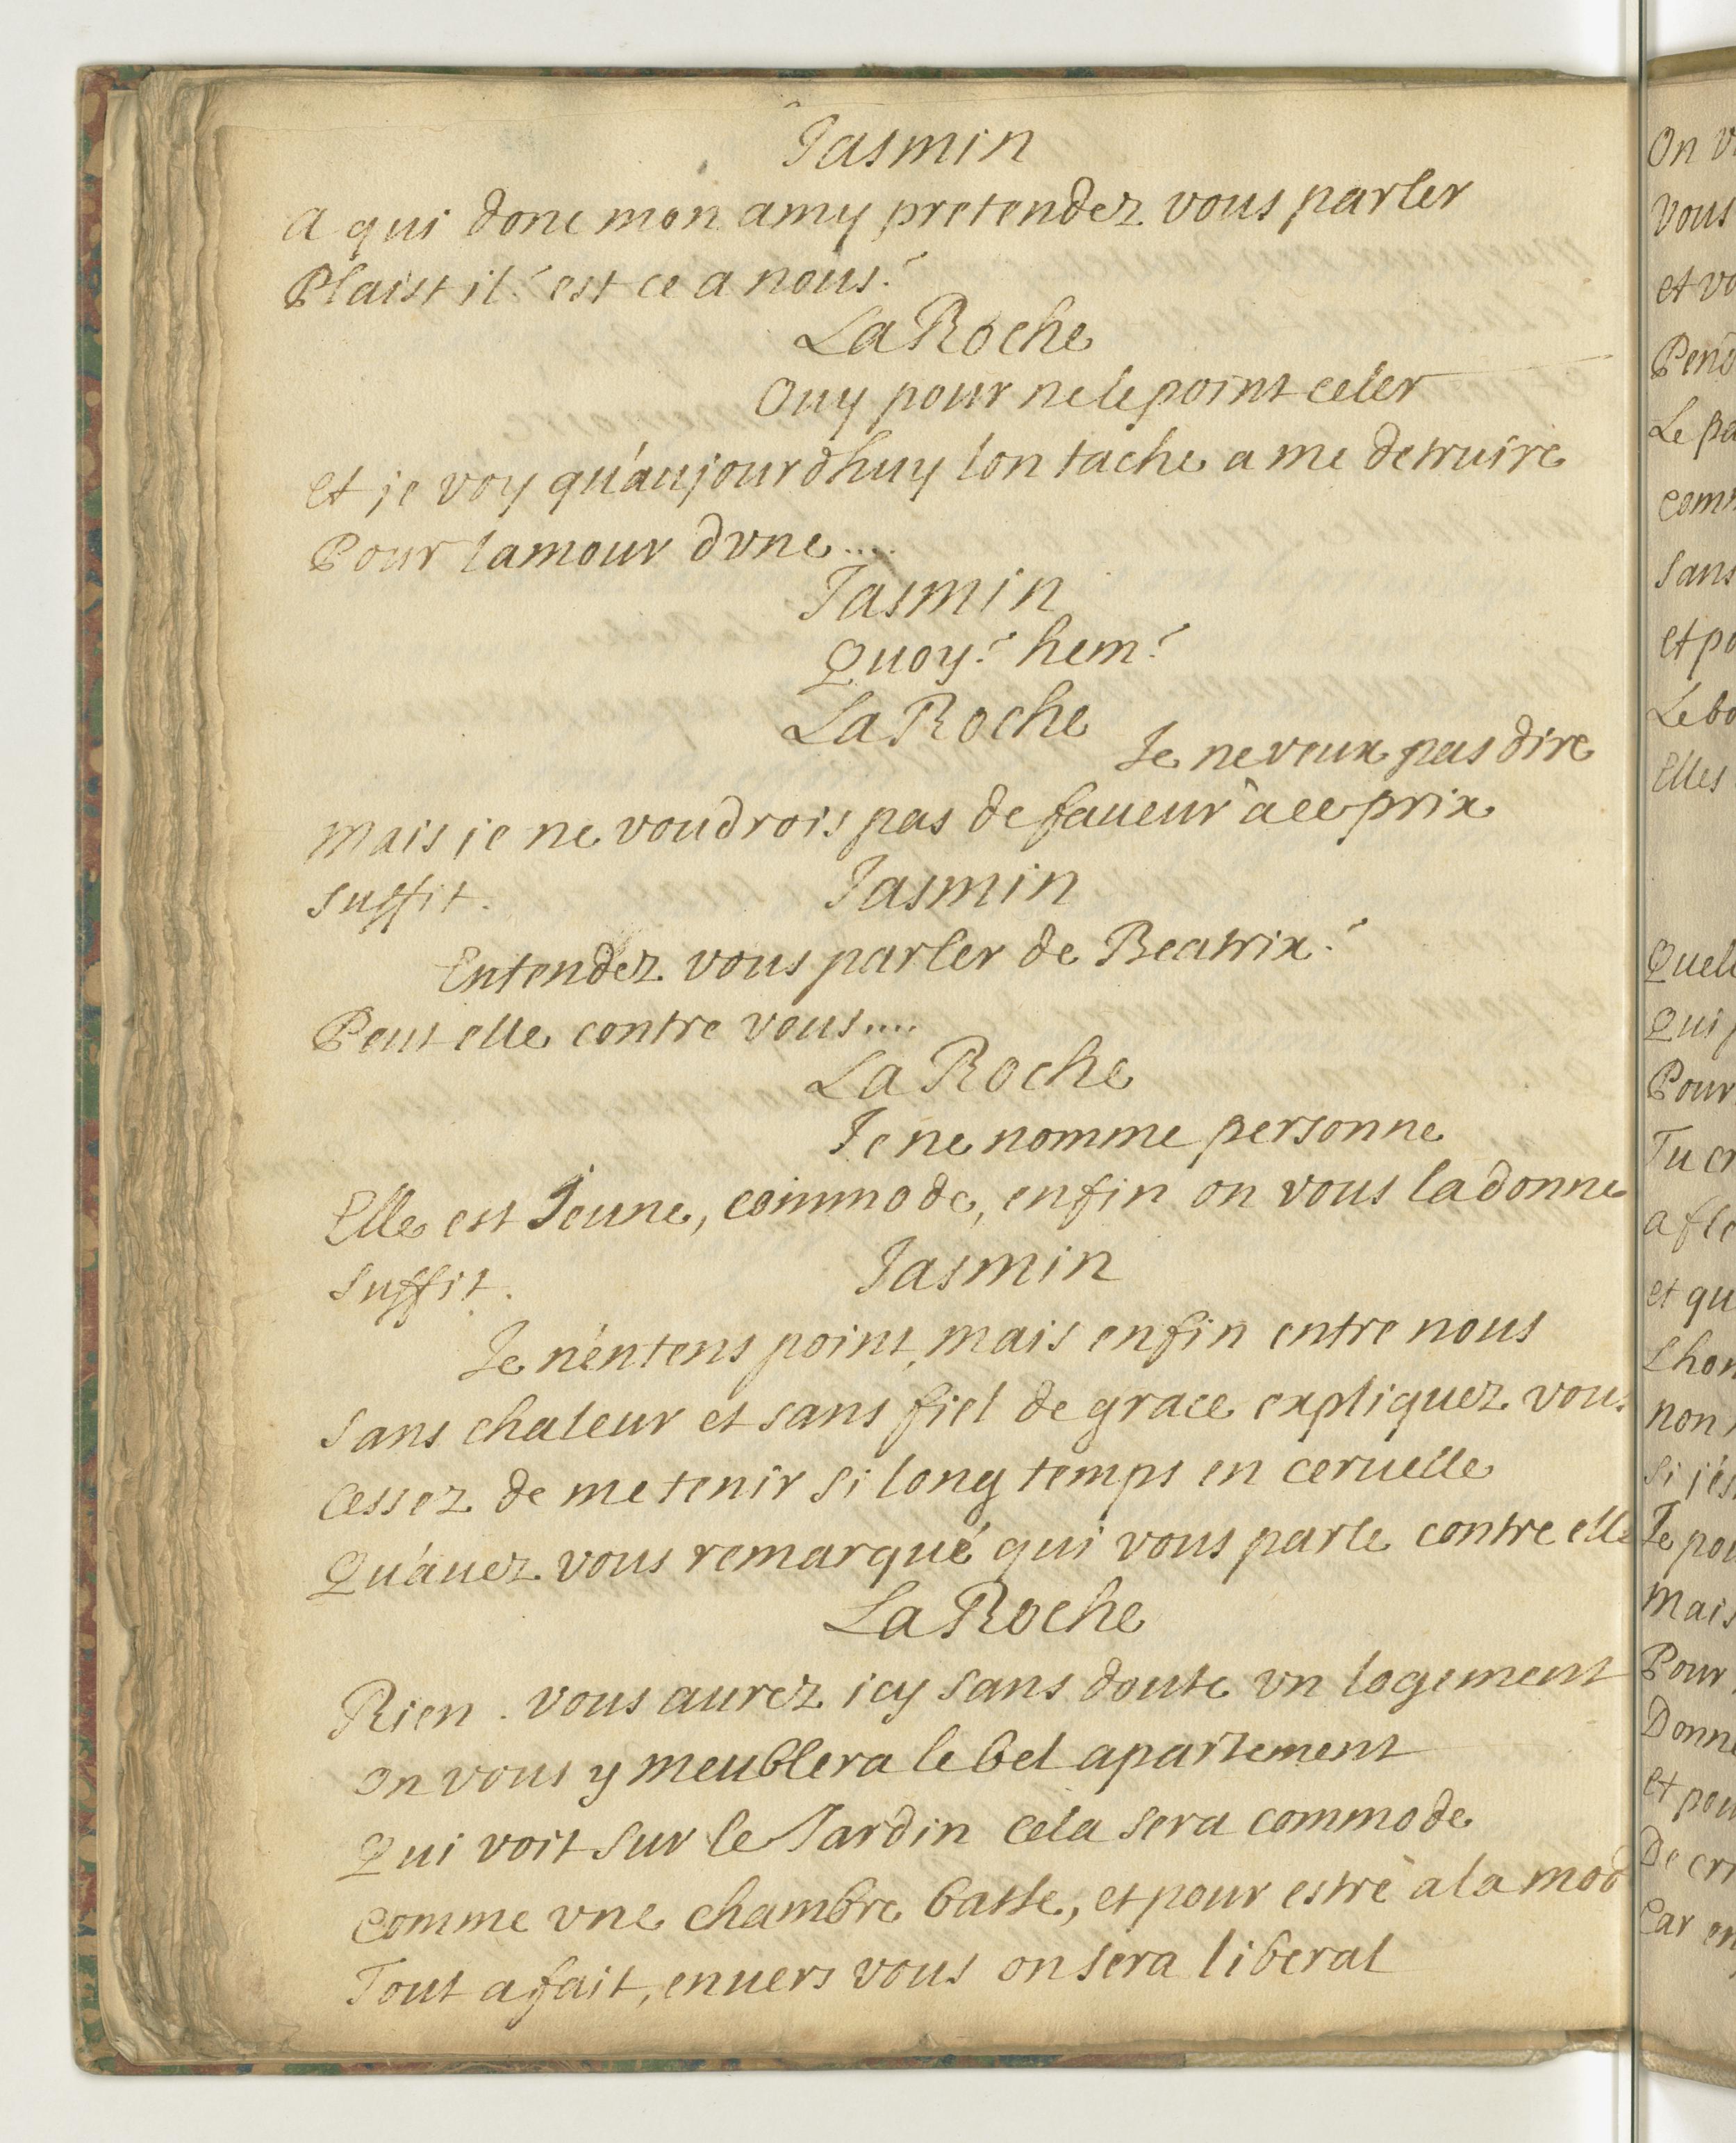 Jasmin
a qui donc mon amy pretendez vous parler
Plaist il? est ce a nous?
La Roche
Ouy pour ne le point celer
et je voy qu'aujourdhuy lon tache a me detruire
Pour lamour dvne....
Jasmin
Quoy? hem?
La Roche
Je ne veux pas dire
Mais je ne voudrois pas de faueur a ce prix
suffit.
Jasmin
Entendez vous parler de Beatrix?
Peut elle contre vous....
La Roche
Je ne nomme personne
Elle est Jeune, commode, enfin on vous la donne
Suffit.
Jasmin
Je n'entens point, mais enfin entre nous
Sans chaleur et sans fiel de grace expliquez vous
Cessez de me tenir si long temps en ceruelle
Qu'auez vous remarqué qui vous parle contre elle
La Roche
Rien. vous aurez icy sans doute vn logement
On vous y meublera le bel apartement
Qui voit sur le Jardin cela sera commode
Comme vne chambre basse, et pour estre a la mod
Tout a fait, enuers vous on sera liberal
On v
Vous
et vo
Le pa
Sans
et po
Elles
Quell
Qui p
Pour
Tu cr
et qu
non
Je pou
Mais
Pour
Donne
et pou
De cri
Car en